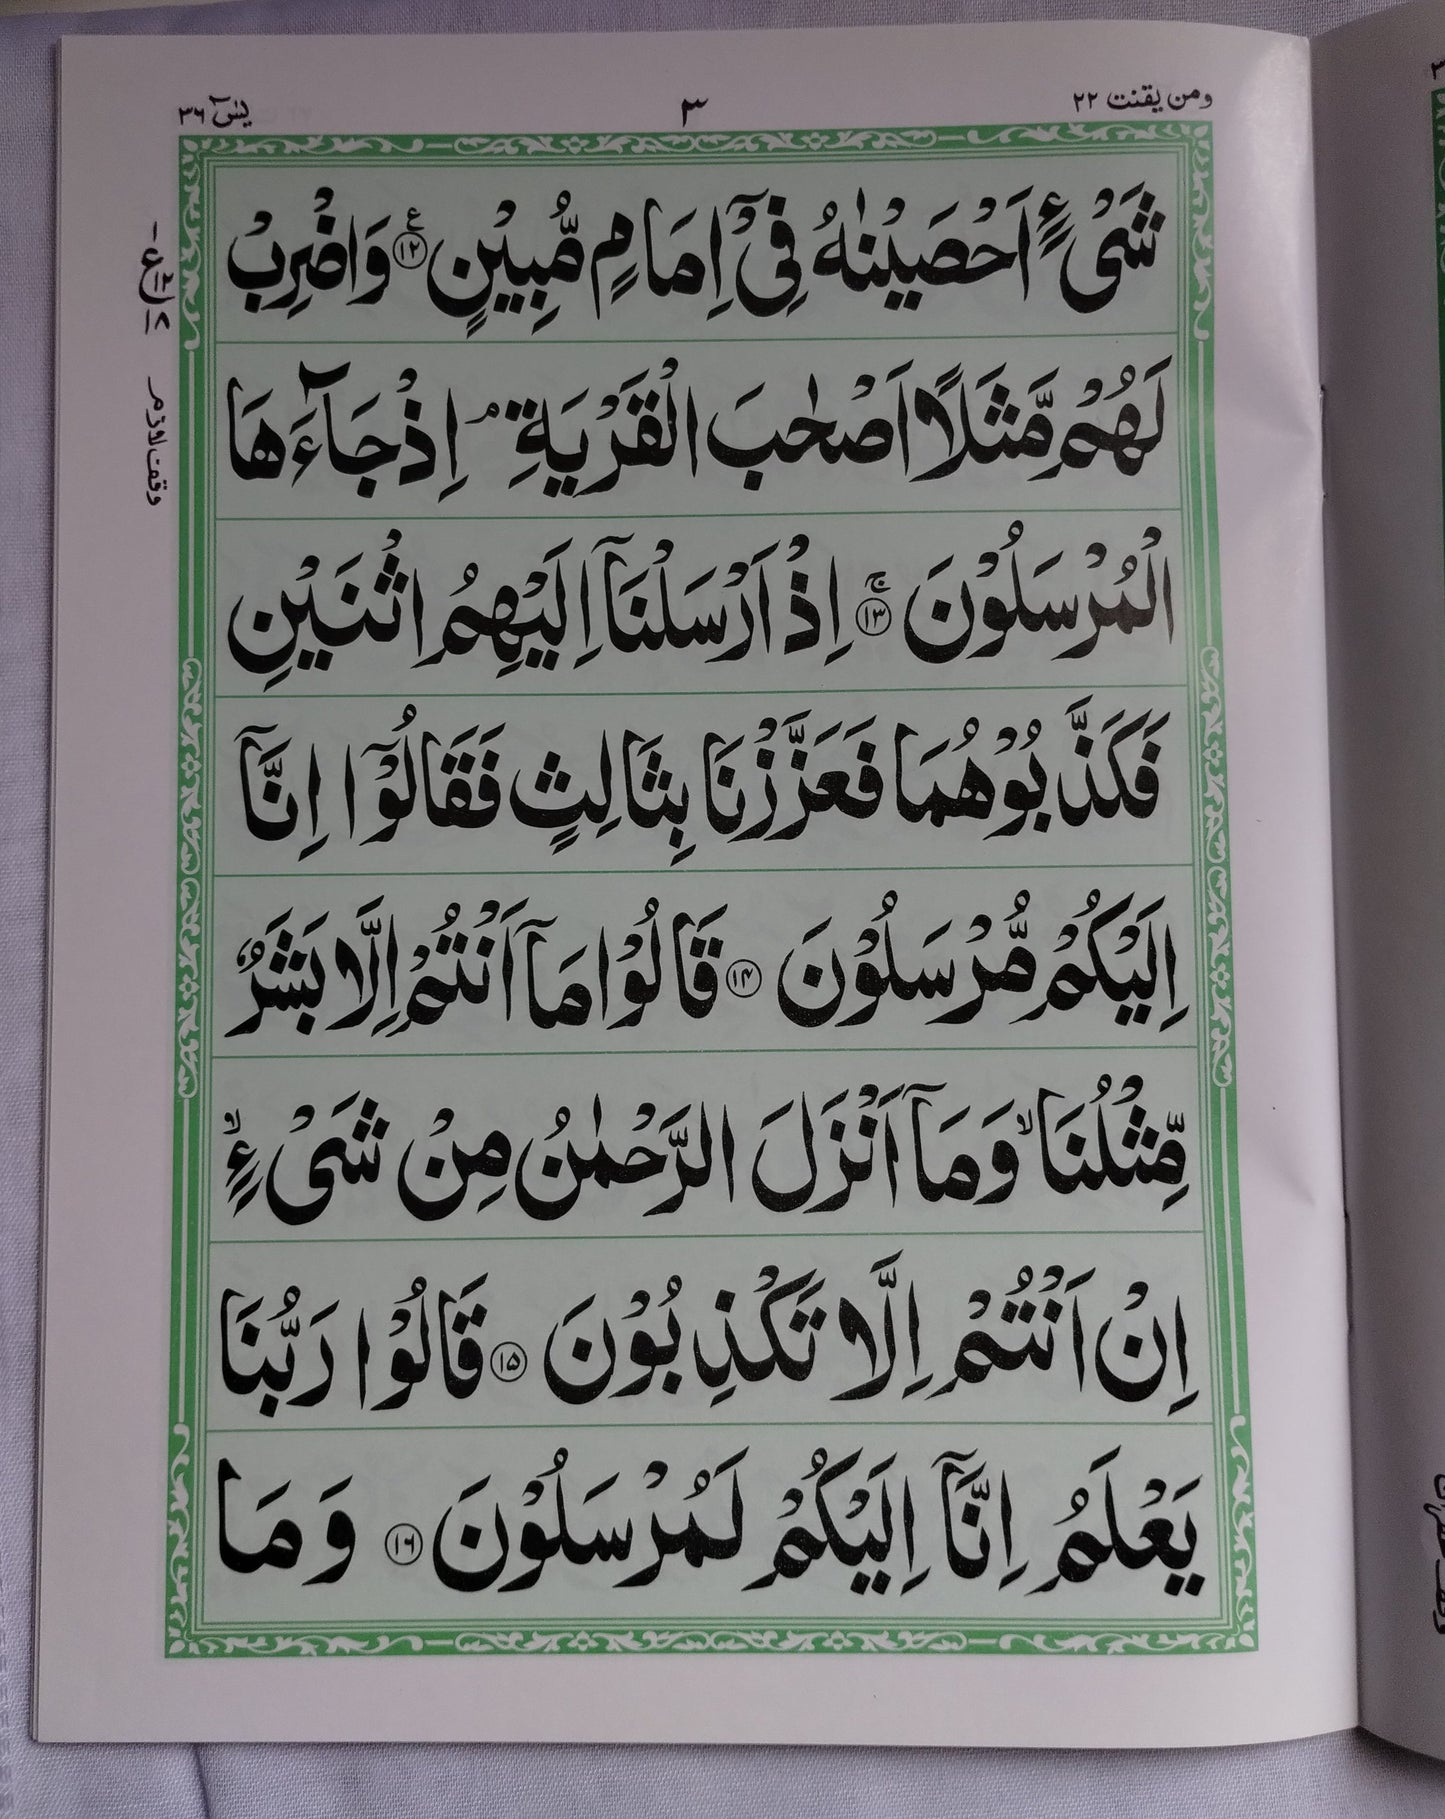 ومن يقنت ٢٢
٣
يٰسٓ ٣٦
شَیْءٍ اَحْصَیْنٰهُ فِیْۤ اِمَامٍ مُّبِیْنٍ ۝۱۲ۧ وَاضْرِبْ
لَهُمْ مَّثَلًا اَصْحٰبَ الْقَرْیَةِ ۘ اِذْ جَآءَهَا
الْمُرْسَلُوْنَ ۝۱۳ۚ اِذْ اَرْسَلْنَاۤ اِلَیْهِمُ اثْنَیْنِ
فَكَذَّبُوْهُمَا فَعَزَّزْنَا بِثَالِثٍ فَقَالُوْۤا اِنَّاۤ
اِلَیْكُمْ مُّرْسَلُوْنَ ۝۱۴ قَالُوْا مَاۤ اَنْتُمْ اِلَّا بَشَرٌ
مِّثْلُنَا ۙ وَمَاۤ اَنْزَلَ الرَّحْمٰنُ مِنْ شَیْءٍ ۙ
اِنْ اَنْتُمْ اِلَّا تَكْذِبُوْنَ ۝۱۵ قَالُوْا رَبُّنَا
یَعْلَمُ اِنَّاۤ اِلَیْكُمْ لَمُرْسَلُوْنَ ۝۱۶ وَمَا
وقف لازم